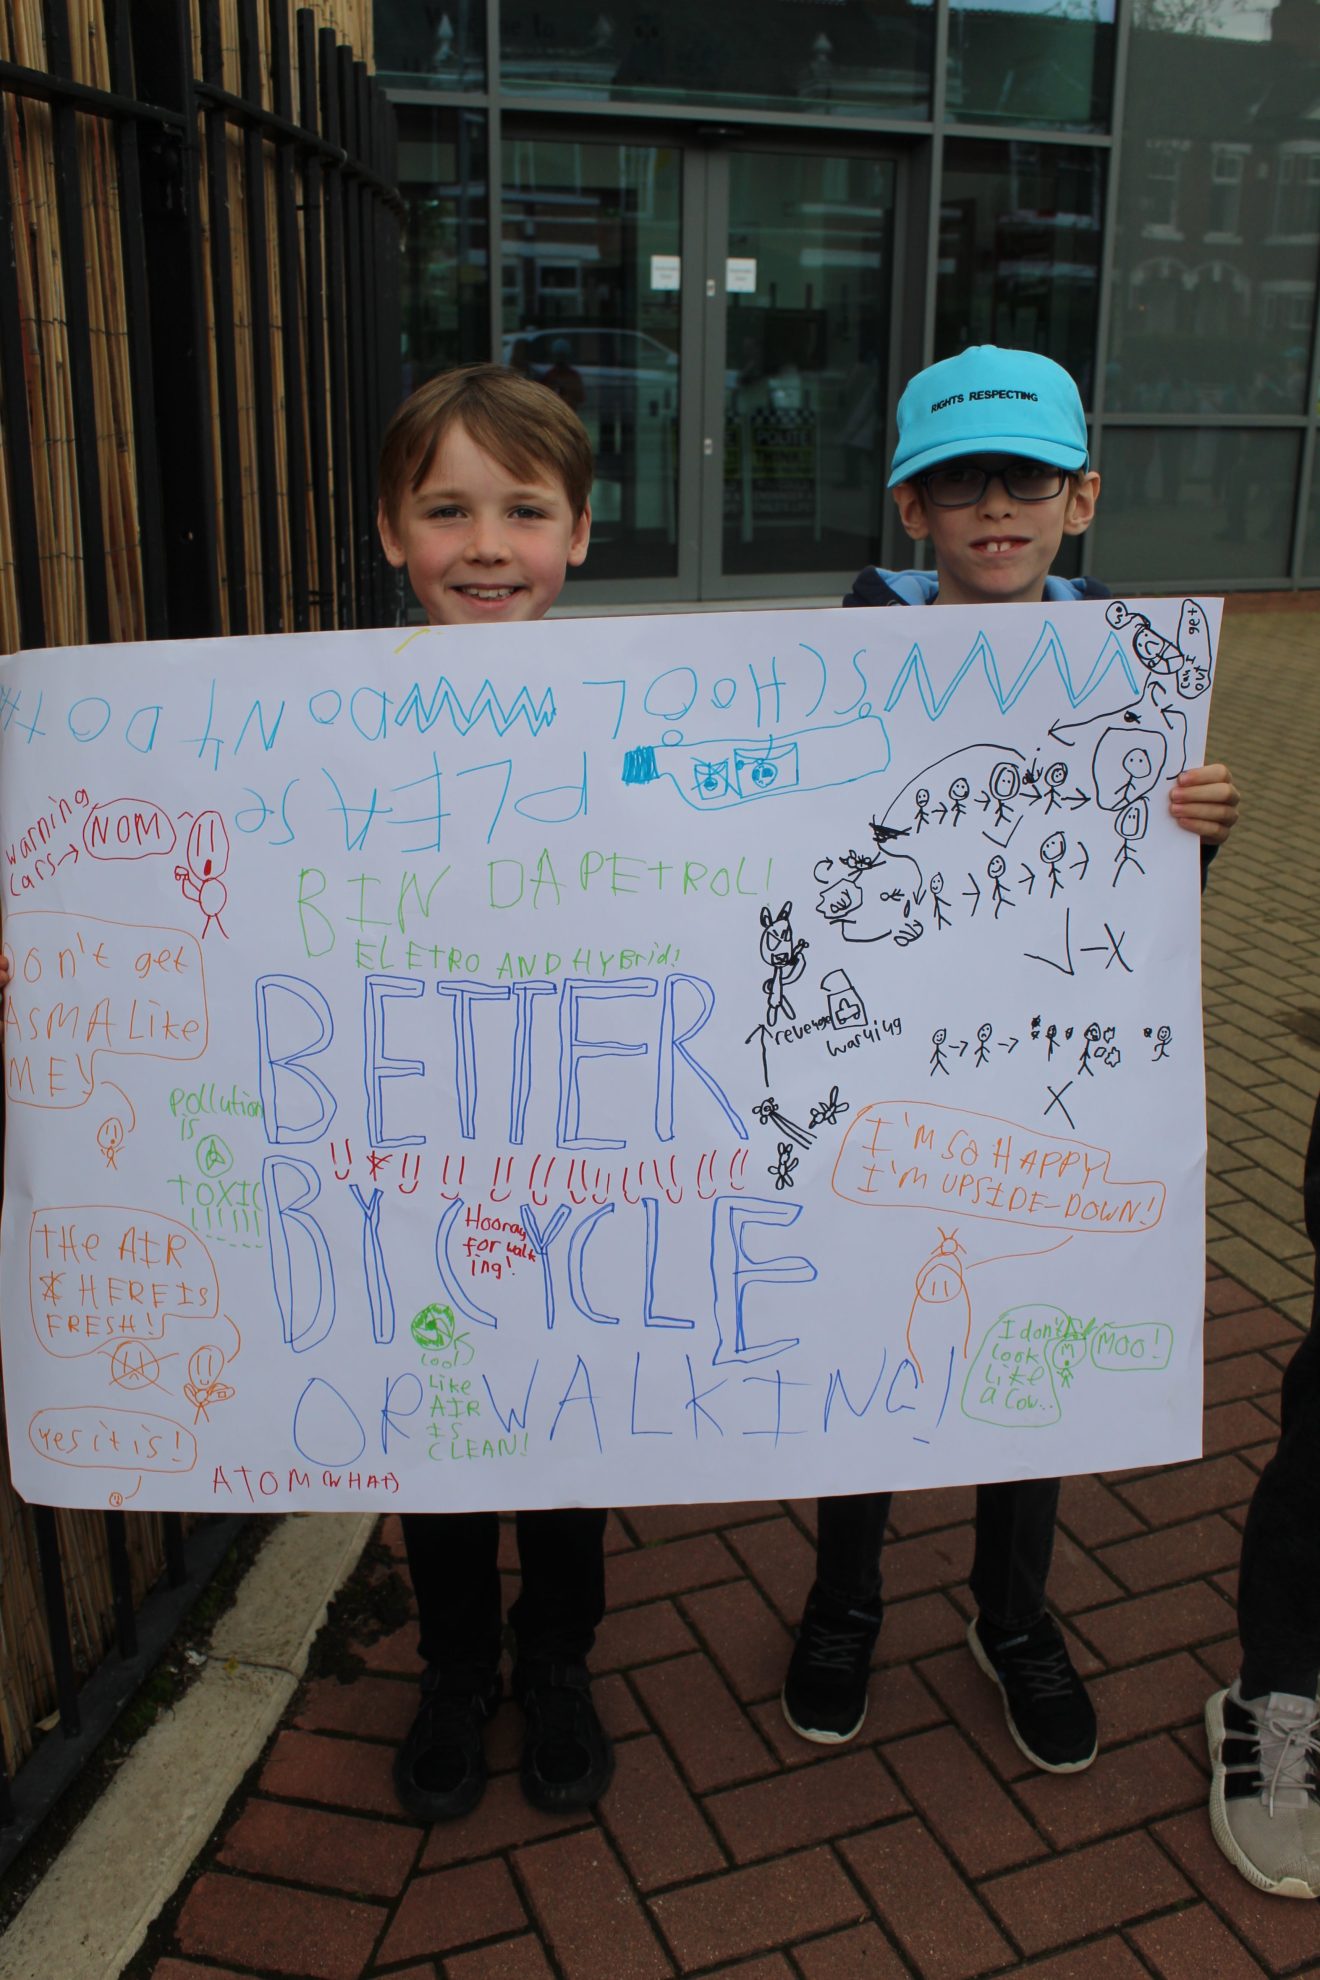 RIGHTS RESPECTING
POLITE
THINK!
get
can I
out
SCHOOL
DON'T DO
PLEASE
warning
cars→
NOM
BIN DA PETROL!
ELETRO AND HYBrid!
Don't get
ASMA Like
MEY
BETTER
revenge
warning
Pollution
is
TOXIC
!!!!!!
BY CYCLE
Hooray
for walk
ing!
I'M SO HAPPY
I'M UPSIDE-DOWN!
THE AIR
HERE IS
FRESH!
yes it is!
is
cool
Like
AIR
IS
CLEAN!
OR WALKING!
I don't
look
Like
a cow...
MOO!
ATOM (WHAT)